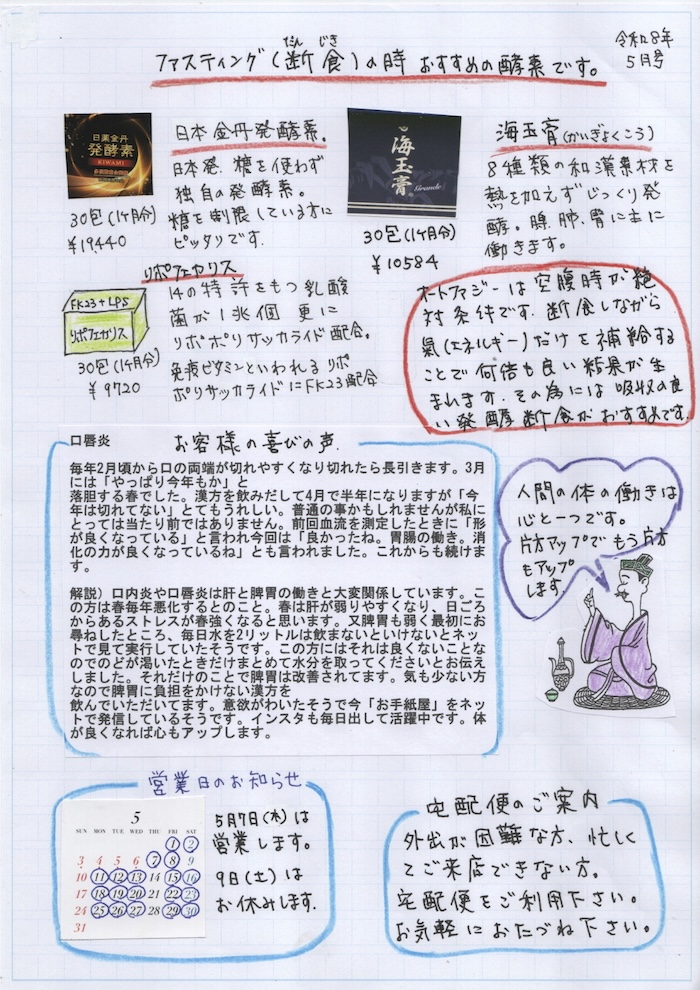 令和8年
5月号
ファスティング(断食)の時 おすすめの酵素です。
だん じき
日本金丹発酵素。
日本発、糖を使わず
独自の発酵素。
糖を制限している方に
ピッタリです。
日薬金丹
発酵素
KIWAMI
30包(1ヶ月分)
¥19,440
海玉膏
Grande
30包(1ヶ月分)
¥10584
海玉膏(かいぎょくこう)
8種類の和漢素材を
熱を加えずじっくり発
酵。腸、肺、胃に主に
働きます。
リポフェカリス
14の特許をもつ乳酸
菌が1兆個 更に
リポポリサッカライド配合。
免疫ビタミンといわれるリポ
ポリサッカライドにFK23配合
FK23+LPS
リポフェカリス
30包(1ヶ月分)
¥9720
オートファジーは空腹時が絶
対条件です。断食しながら
氣(エネルギー)だけを補給する
ことで何倍も良い結果が生
まれます。その為には吸収の良
い発酵断食がおすすめです。
口唇炎
お客様の喜びの声
毎年2月頃から口の両端が切れやすくなり切れたら長引きます。3月
には「やっぱり今年もか」と
落胆する春でした。漢方を飲みだして4月で半年になりますが「今
年は切れてない」とてもうれしい。普通の事かもしれませんが私に
とっては当たり前ではありません。前回血流を測定したときに「形
が良くなっている」と言われ今回は「良かったね。胃腸の働き。消
化の力が良くなっているね」とも言われました。これからも続けま
す。
解説）口内炎や口唇炎は肝と脾胃の働きと大変関係しています。こ
の方は春毎年悪化するとのこと。春は肝が弱りやすくなり、日ごろ
からあるストレスが春強くなると思います。又脾胃も弱く最初にお
尋ねしたところ、毎日水を2リットルは飲まないといけないとネッ
トで見て実行していたそうです。この方にはそれは良くないことな
のでのどが渇いたときだけまとめて水分を取ってくださいとお伝え
しました。それだけのことで脾胃は改善されてます。気も少ない方
なので脾胃に負担をかけない漢方を
飲んでいただいてます。意欲がわいたそうで今「お手紙屋」をネッ
トで発信しているそうです。インスタも毎日出して活躍中です。体
が良くなれば心もアップします。
人間の体の働きは
心と一つです。
片方アップで もう片方
もアップ
します。
営業日のお知らせ
5
SUN MON TUE WED THU FRI SAT
1 2
3 4 5 6 7 8 9
10 11 12 13 14 15 16
17 18 19 20 21 22 23
24 25 26 27 28 29 30
31
5月7日(木)は
営業します。
9日(土)は
お休みします。
宅配便のご案内
外出が困難な方、忙しく
てご来店できない方。
宅配便をご利用下さい。
お気軽におたづね下さい。